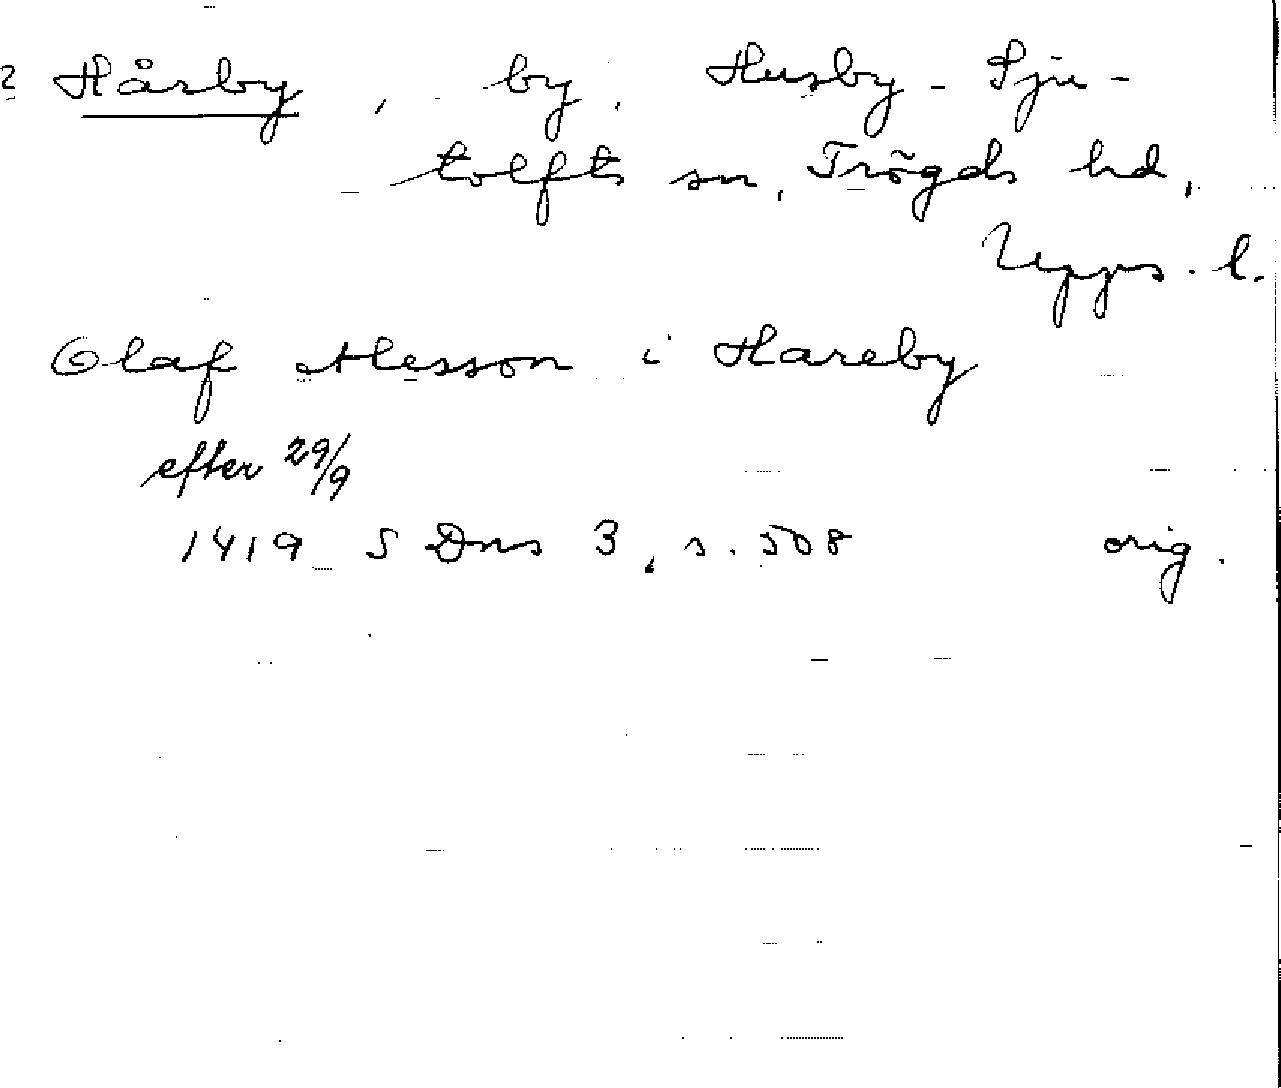 2 Hårby, by, Husby-Sju-
tolfts sn, Trögds hd,
Upps. l.
Olaf Alesson i Hareby
efter 29/9
1419 S Dns 3, s. 508 orig.